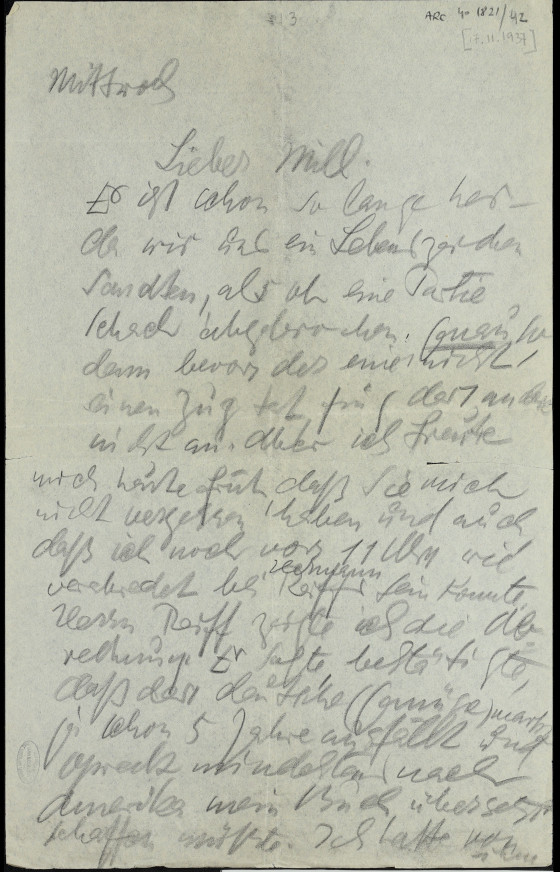 3
ARC 40 1821/42
[7.11.1937]
Mittwoch
Lieber Mill.
Er ist schon so lange her –
da wir uns ein Lebenszeichen
sandten, als ob eine Partie
Schach abgebrochen. Genau so
denn bevor der eine nicht
einen Zug tat fing der andere
nicht an. Aber ich freute
mich heute früh daß Sie mich
nicht vergessen haben und auch
daß ich noch vor 11 Uhr wie
verabredet bei Hermann
Reiff sein konnte.
Herrn Reiff zeigte ich die Ab-
rechnung. Er sagte, bestätigte,
daß der deutsche markt
ja schon 5 Jahre ausfällt und
mindestens nach
Amerika mein Buch übersetzt
schaffen müßte. Ich hatte von
ihm